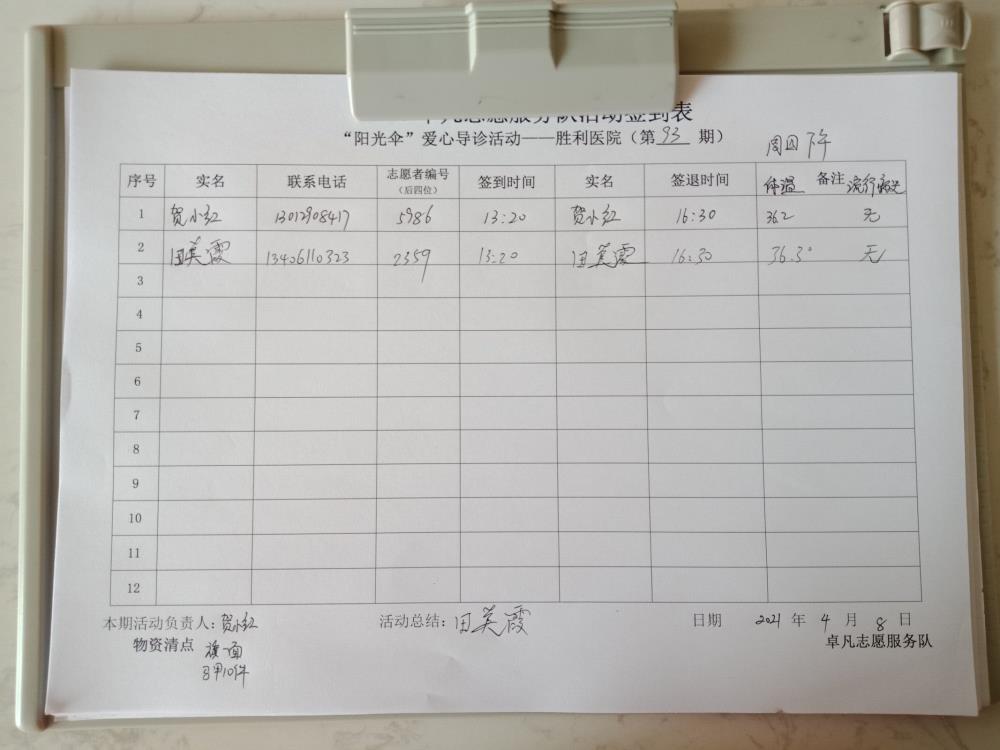 卓凡志愿服务队活动签到表
“阳光伞”爱心导诊活动——胜利医院（第 93 期）
周四下午
序号 实名 联系电话 志愿者编号（后四位） 签到时间 实名 签退时间 体温 备注 流行病史
1 贺小红 13012908417 5986 13:20 贺小红 16:30 36.2 无
2 田英霞 13406110323 2359 13:20 田英霞 16:30 36.3° 无
3
4
5
6
7
8
9
10
11
12
本期活动负责人：贺小红 活动总结：田英霞 日期 2021 年 4 月 8 日
物资清点 旗一面 卓凡志愿服务队
马甲10件